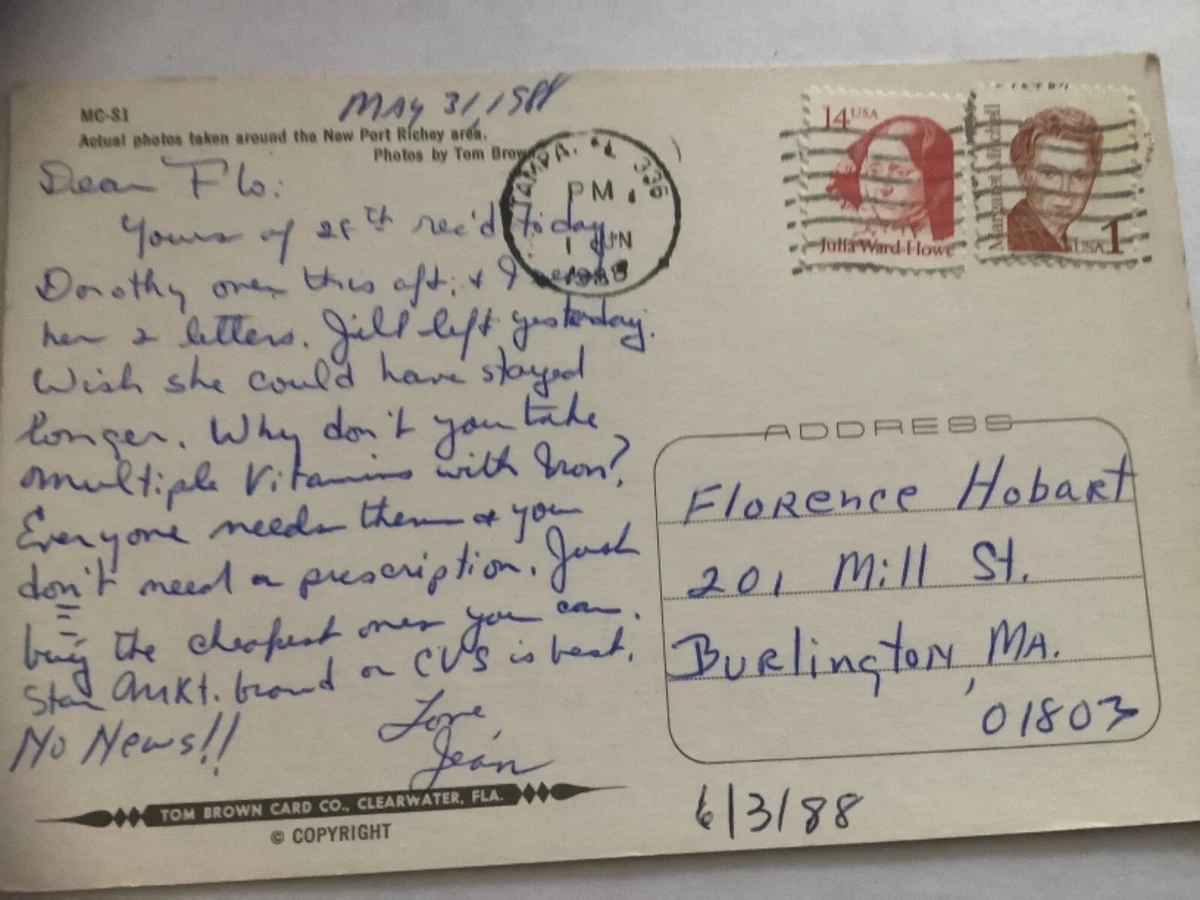 MC-81
MAY 31, 1988
Actual photos taken around the New Port Richey area.
Photos by Tom Brown
TAMPA, FL 336
PM
1 JUN
1988
14 USA
Julia Ward Howe
Margaret Mitchell
USA 1
Dear Flo:
Yours of 28th rec'd today.
Dorothy over this aft. & I
her 2 letters. Jill left yesterday.
Wish she could have stayed
longer. Why don't you take
multiple Vitamins with Iron?
Everyone needs them & you
don't need a prescription. Just
buy the cheapest ones you can.
Star Mkt. brand or CVS is best.
No News!!
Love,
Jean
ADDRESS
Florence Hobart
201 Mill St.
Burlington, MA.
01803
TOM BROWN CARD CO., CLEARWATER, FLA.
© COPYRIGHT
6/3/88